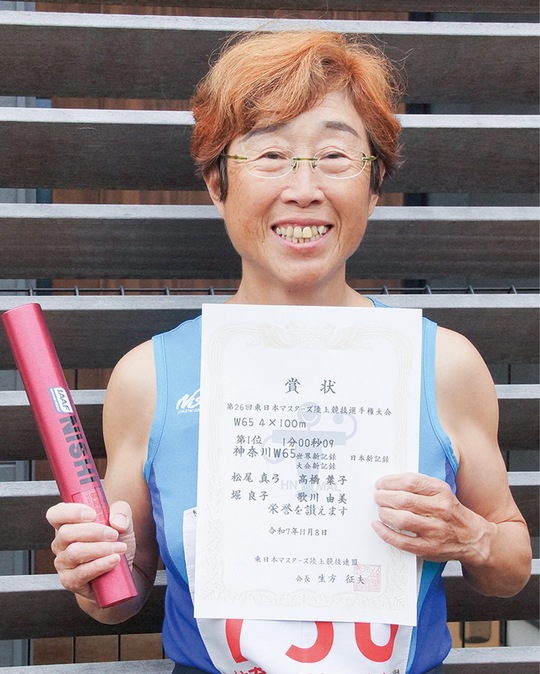 賞状
第26回東日本マスターズ陸上競技選手権大会
W65 4×100m
第1位 1分00秒09
神奈川W65 世界新記録 日本新記録
大会新記録
松尾 真弓 高橋 葉子
堀 良子 歌川 由美
栄誉を讃えます
令和7年11月8日
東日本マスターズ陸上競技連盟
会長 生方 征夫
IAAF
NISHI